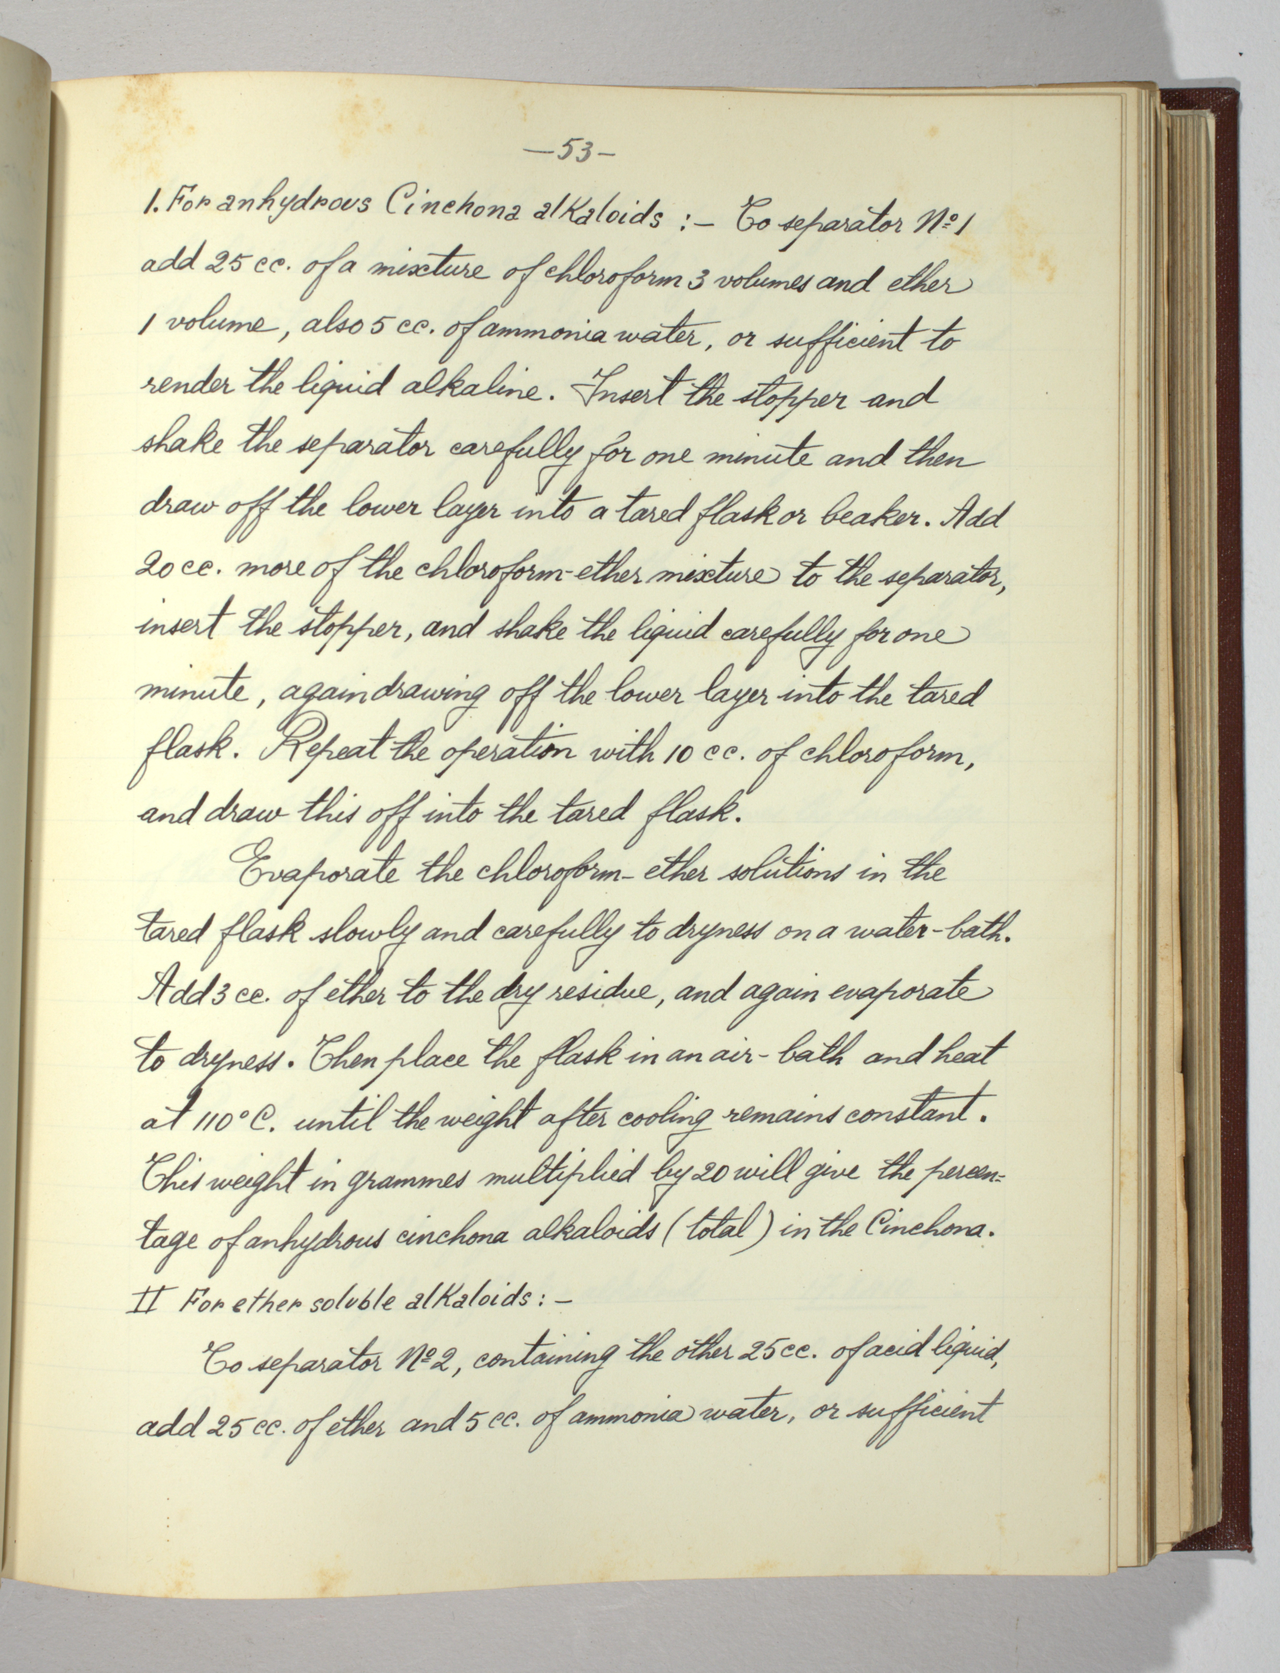 —53—
1. For anhydrous Cinchona alkaloids :— To separator Nº 1
add 25 cc. of a mixture of chloroform 3 volumes and ether
1 volume, also 5 cc. of ammonia water, or sufficient to
render the liquid alkaline. Insert the stopper and
shake the separator carefully for one minute and then
draw off the lower layer into a tared flask or beaker. Add
20 cc. more of the chloroform-ether mixture to the separator,
insert the stopper, and shake the liquid carefully for one
minute, again drawing off the lower layer into the tared
flask. Repeat the operation with 10 cc. of chloroform,
and draw this off into the tared flask.
Evaporate the chloroform-ether solutions in the
tared flask slowly and carefully to dryness on a water-bath.
Add 3 cc. of ether to the dry residue, and again evaporate
to dryness. Then place the flask in an air-bath and heat
at 110° C. until the weight after cooling remains constant.
This weight in grammes multiplied by 20 will give the percen=
tage of anhydrous cinchona alkaloids (total) in the Cinchona.
II For ether soluble alkaloids :—
To separator Nº 2, containing the other 25 cc. of acid liquid,
add 25 cc. of ether and 5 cc. of ammonia water, or sufficient